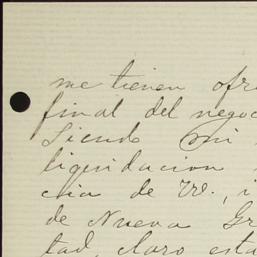 me tienen ofre
final del negoc
Siendo mi
liquidacion
cia de W., i
de Nueva Gr
tad, claro esta